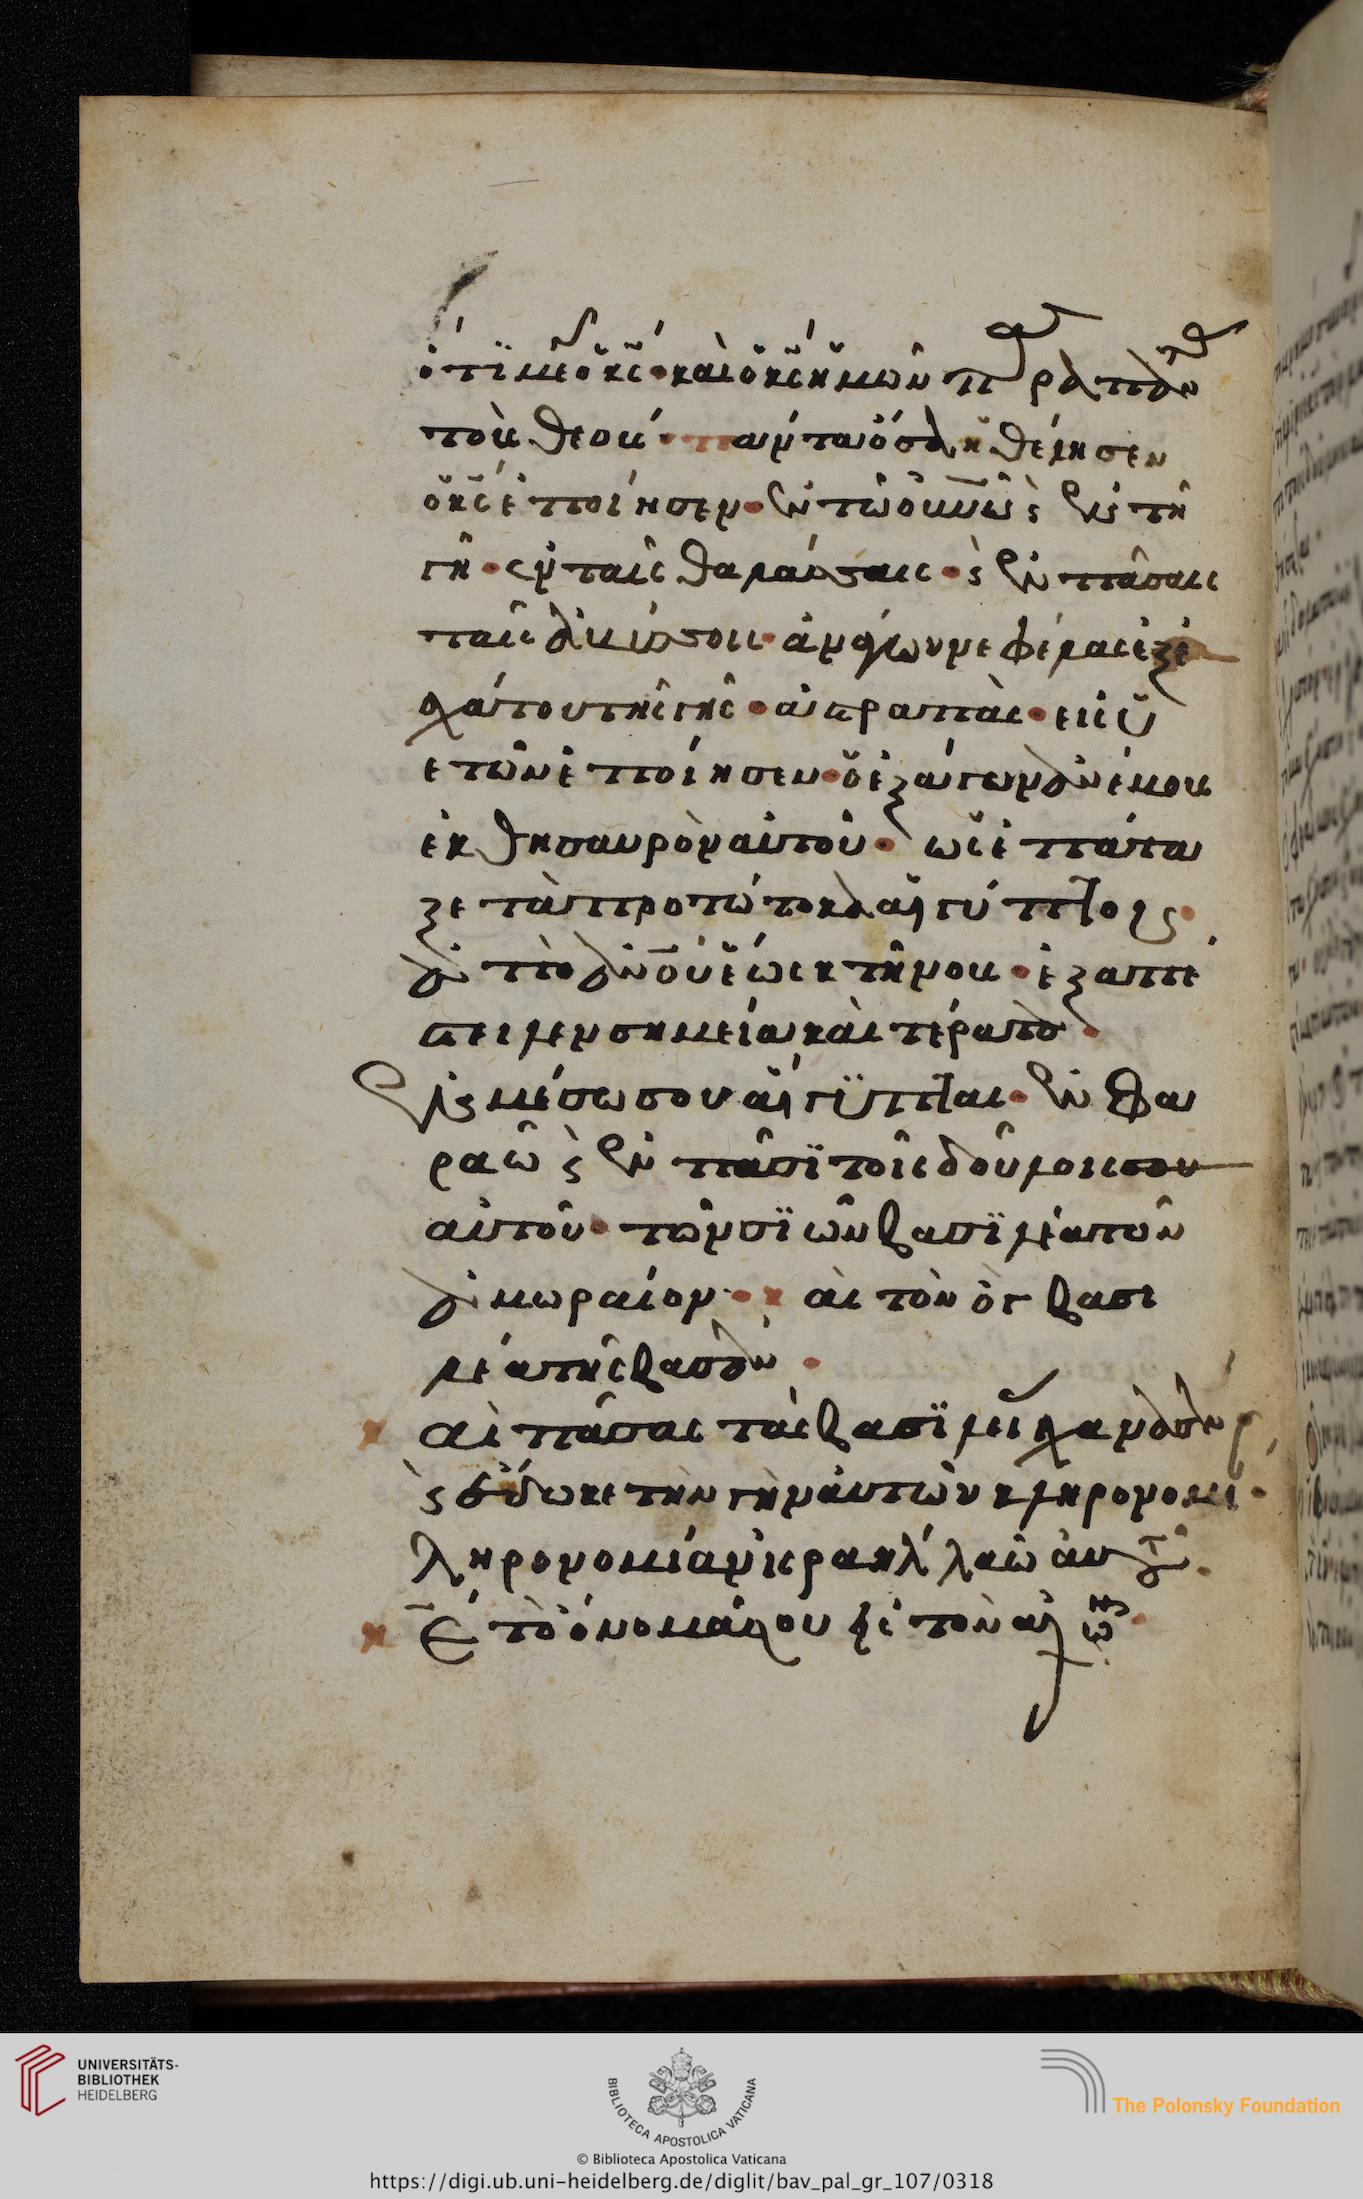 ὅτι μέγας ὁ κς · καὶ ὁ κς ἡμῶν παρὰ πάντας
τοὺς θεούς · πάντα ὅσα ἠθέλησεν
ὁ κς ἐποίησεν · ἐν τῶ οὐνῶ ς ἐν τῆ
γῆ · ἐν ταῖς θαλάσσαις · ς ἐν πάσαις
ταῖς ἀβύσσοις · ἀνάγων νεφέλας ἐξ ἐ
σχάτου τῆς γῆς · ἀστραπὰς · εἰς ὑ
ετὸν ἐποίησεν · ὁ ἐξάγων ἀνέμους
ἐκ θησαυρὸν αὐτοῦ · ὃς ἐπάτα
ξε τὰ προτώτοκα αἰγύπτου ·
ἀπὸ ἀνου ἕως κτήνους · ἐξαπέ
στειλεν σημεία καὶ τέρατα ·
ἐν μέσω σου αἴγϋπται · ἐν Φα
ραῶ ς ἐν πᾶσϊ τοῖς δούλοις
αὐτοῦ · τὸν σϊὼν βασϊλέα τῶν
ἀμωραίον · καὶ τὸν ὂγ βασι
λέα τῆς βασὰν ·
καὶ πάσας τὰς βασϊλείας χαναάν
ς ἔδωκε τὴν γὴν αὐτῶν κληρονομί ·
κληρονομίαν ισραηλ λαῶ αὐτοῦ ·
κε τὸ ὄνομά σου εἰς τὸν αἰῶνα ·
UNIVERSITÄTS-
BIBLIOTHEK
HEIDELBERG
BIBLIOTECA APOSTOLICA VATICANA
The Polonsky Foundation
© Biblioteca Apostolica Vaticana
https://digi.ub.uni-heidelberg.de/diglit/bav_pal_gr_107/0318